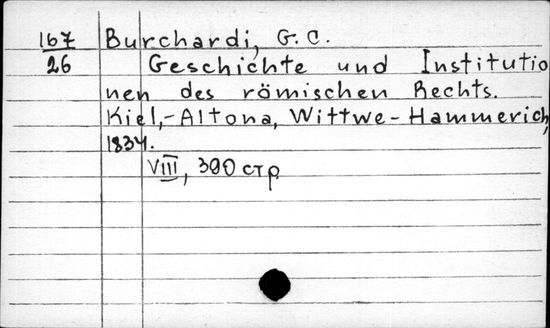 167 Burchardi, G. C.
26 Geschichte und Institutio
nen des römischen Rechts.
Kiel,-Altona, Wittwe-Hammerich,
1834.
VIII, 390 стр